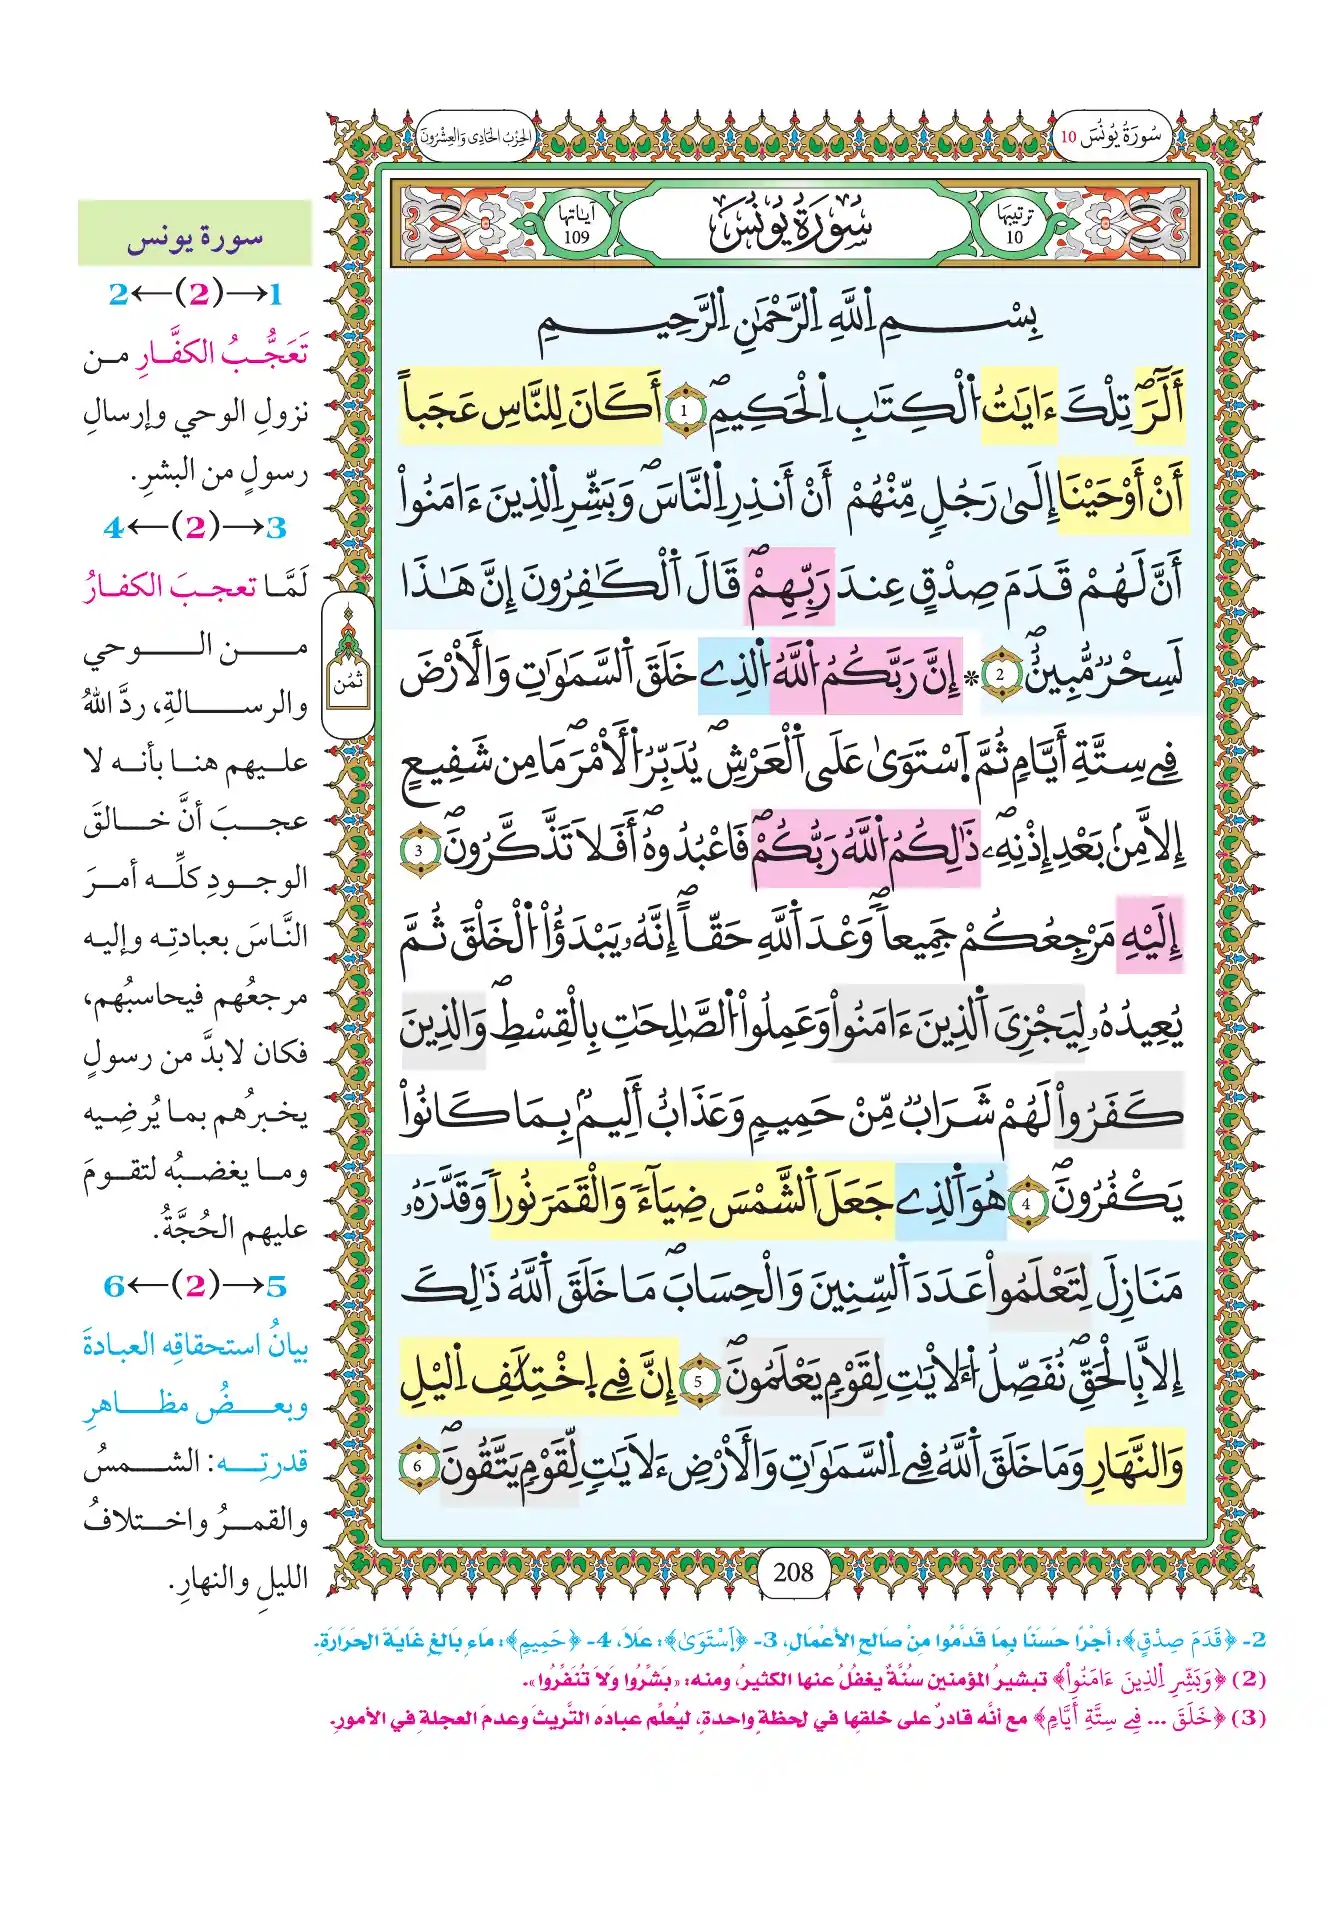 سُورَةُ يُونُسَ 10
الحِزْبُ الحَادِي وَالعِشْرُونَ
ترتيبها
10
سُورَةُ يُونُسَ
آياتها
109
بِسْمِ اِ۬للَّهِ اِ۬لرَّحْمَٰنِ اِ۬لرَّحِيمِ
أَلَٓرۖ تِلْكَ ءَايَٰتُ اُ۬لْكِتَٰبِ اِ۬لْحَكِيمِۖ 1 أَكَانَ لِلنَّاسِ عَجَباً
أَنْ أَوْحَيْنَا إِلَىٰ رَجُلٖ مِّنْهُمْ أَنْ أَنذِرِ اِ۬لنَّاسَۖ وَبَشِّرِ اِ۬لذِينَ ءَامَنُواْ
أَنَّ لَهُمْ قَدَمَ صِدْقٍ عِندَ رَبِّهِمْۖ قَالَ اَ۬لْكَٰفِرُونَ إِنَّ هَٰذَا
لَسِحْرٞ مُّبِينٌۖ 2 * إِنَّ رَبَّكُمُ اُ۬للَّهُ اُ۬لذِے خَلَقَ اَ۬لسَّمَٰوَٰتِ وَالَارْضَ
فِے سِتَّةِ أَيَّامٖ ثُمَّ اَ۪سْتَوَىٰ عَلَى اَ۬لْعَرْشِۖ يُدَبِّرُ اُ۬لَامْرَۖ مَا مِن شَفِيعٍ
اِلَّا مِنۢ بَعْدِ إِذْنِهِۦۖ ذَٰلِكُمُ اُ۬للَّهُ رَبُّكُمْۖ فَاعْبُدُوهُۖ أَفَلَا تَذَّكَّرُونَۖ 3
إِلَيْهِ مَرْجِعُكُمْ جَمِيعاٗۖ وَعْدَ اَ۬للَّهِ حَقّاًۖ إِنَّهُۥ يَبْدَؤُاْ اُ۬لْخَلْقَ ثُمَّ
يُعِيدُهُۥ لِيَجْزِيَ اَ۬لذِينَ ءَامَنُواْ وَعَمِلُواْ اُ۬لصَّٰلِحَٰتِ بِالْقِسْطِۖ وَالذِينَ
كَفَرُواْ لَهُمْ شَرَابٞ مِّنْ حَمِيمٖ وَعَذَابٌ أَلِيمُۢ بِمَا كَانُواْ
يَكْفُرُونَۖ 4 هُوَ اَ۬لذِے جَعَلَ اَ۬لشَّمْسَ ضِيَآءٗ وَالْقَمَرَ نُوراٗ وَقَدَّرَهُۥ
مَنَازِلَ لِتَعْلَمُواْ عَدَدَ اَ۬لسِّنِينَ وَالْحِسَابَۖ مَا خَلَقَ اَ۬للَّهُ ذَٰلِكَ
إِلَّا بِالْحَقِّۖ نُفَصِّلُ اُ۬لَايَٰتِ لِقَوْمٖ يَعْلَمُونَۖ 5 إِنَّ فِے اِ۪خْتِلَٰفِ اِ۬ليْلِ
وَالنَّهَارِ وَمَا خَلَقَ اَ۬للَّهُ فِے اِ۬لسَّمَٰوَٰتِ وَالَارْضِ ءَلَايَٰتٖ لِّقَوْمٖ يَتَّقُونَۖ 6
ثُمُن
208
سورة يونس
1→(2)←2
تَعَجُّبُ الكفَّارِ من
نزولِ الوحي وإرسالِ
رسولٍ من البشرِ.
3→(2)←4
لَمَّا تعجبَ الكفارُ
من الوحي
والرسالةِ، ردَّ اللهُ
عليهم هنا بأنه لا
عجبَ أنَّ خالقَ
الوجودِ كلِّه أمرَ
النَّاسَ بعبادتِه وإليه
مرجعُهم فيحاسبُهم،
فكان لابدَّ من رسولٍ
يخبرُهم بما يُرضِيه
وما يغضبُه لتقومَ
عليهم الحُجَّةُ.
5→(2)←6
بيانُ استحقاقِه العبادةَ
وبعضُ مظاهرِ
قدرتِه: الشمسُ
والقمرُ واختلافُ
الليلِ والنهارِ.
2- ﴿قَدَمَ صِدْقٍ﴾: أجْرًا حَسَنًا بِمَا قَدَّمُوا مِنْ صَالِحِ الأَعْمَالِ، 3- ﴿اَ۪سْتَوَىٰ﴾: عَلَا، 4- ﴿حَمِيمٖ﴾: مَاءٍ بَالِغٍ غَايَةَ الحَرَارَةِ.
(2) ﴿وَبَشِّرِ اِ۬لذِينَ ءَامَنُواْ﴾ تبشيرُ المؤمنين سُنَّةٌ يغفُلُ عنها الكثيرُ، ومنه: «بَشِّرُوا وَلَا تُنَفِّرُوا».
(3) ﴿خَلَقَ ... فِے سِتَّةِ أَيَّامٖ﴾ مع أنَّه قادرٌ على خلقِها في لحظةٍ واحدةٍ، ليُعلِّم عبادَه التَّريثَ وعدمَ العجلةِ في الأمورِ.